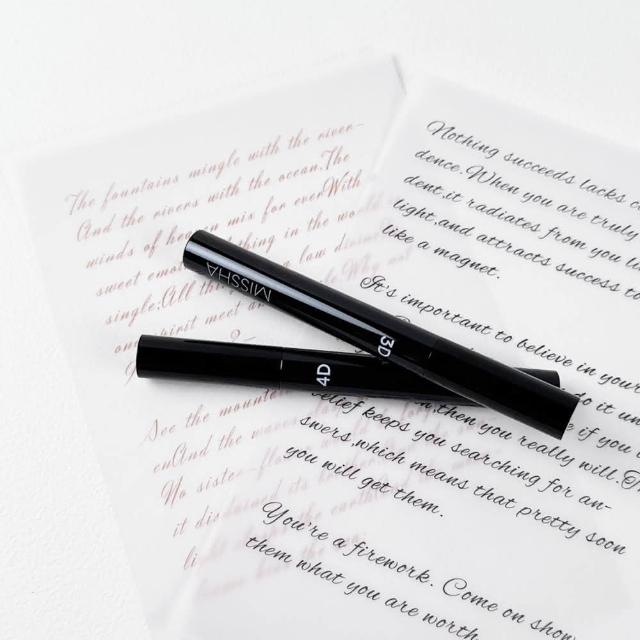 The fountains mingle with the river
And the rivers with the ocean.The
winds of heaven mix for everWith
sweet emot thing in the world
single.All th a law divin
one spirit meet an Why not
See the mount
enAnd the waves
No sister-flo
it disdained its b
Nothing succeeds lacks c
dence.When you are truly
dent,it radiates from you li
light,and attracts success to
like a magnet.
It's important to believe in your
to it un
e if you c
elief keeps you searching for an-
then you really will.Th
swers,which means that pretty soon
you will get them.
You're a firework. Come on show
them what you are worth
MISSHA
3D
4D